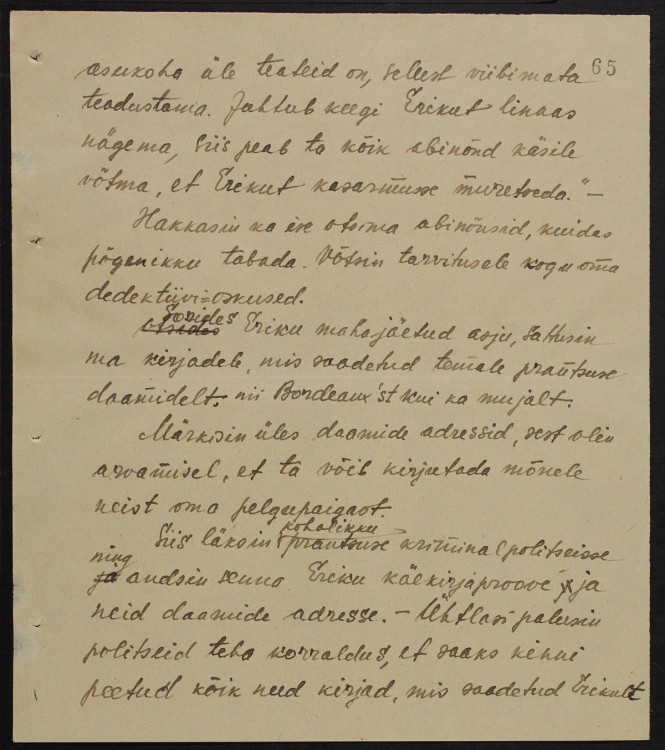 65
asukoha üle teateid on, sellest viibimata
teadustama. Juhtub keegi Erikut linnas
nägema, siis peab ta kõik abinõud käsile
võtma, et Erikut kasarmusse muretseda." —
Hakkasin ka ise otsima abinõusid, kuidas
põgenikku tabada. Võtsin tarvitusele kogu oma
dedektiivi=oskused.
Sorides
otsides Eriku mahajäetud asju, sattusin
ma kirjadele, mis saadetud temale prantsuse
daamidelt, nii Bordeaux'st kui ka mujalt.
Märkisin üles daamide adressid, sest olin
arvamisel, et ta võib kirjutada mõnele
neist oma pelgupaigast.
kohalikku
Siis läksin prantsuse kriminaalpolitseisse
ning
ja andsin senna Eriku käekirjaproove ja
neid daamide adresse. — Ühtlasi palusin
politseid teha korraldus, et saaks kinni
peetud kõik need kirjad, mis saadetud Erikult